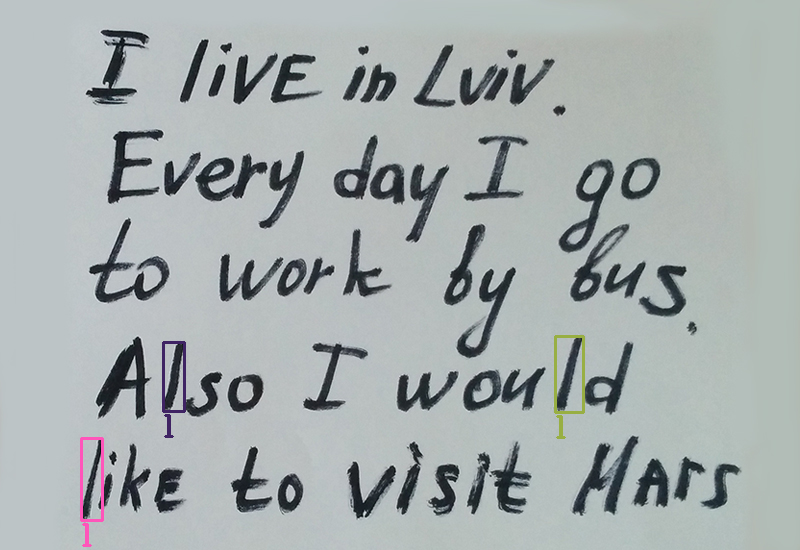 I liVE in Lviv.
Every day I go
to work by bus.
Also I would
likE to visit MArs
l
l
l